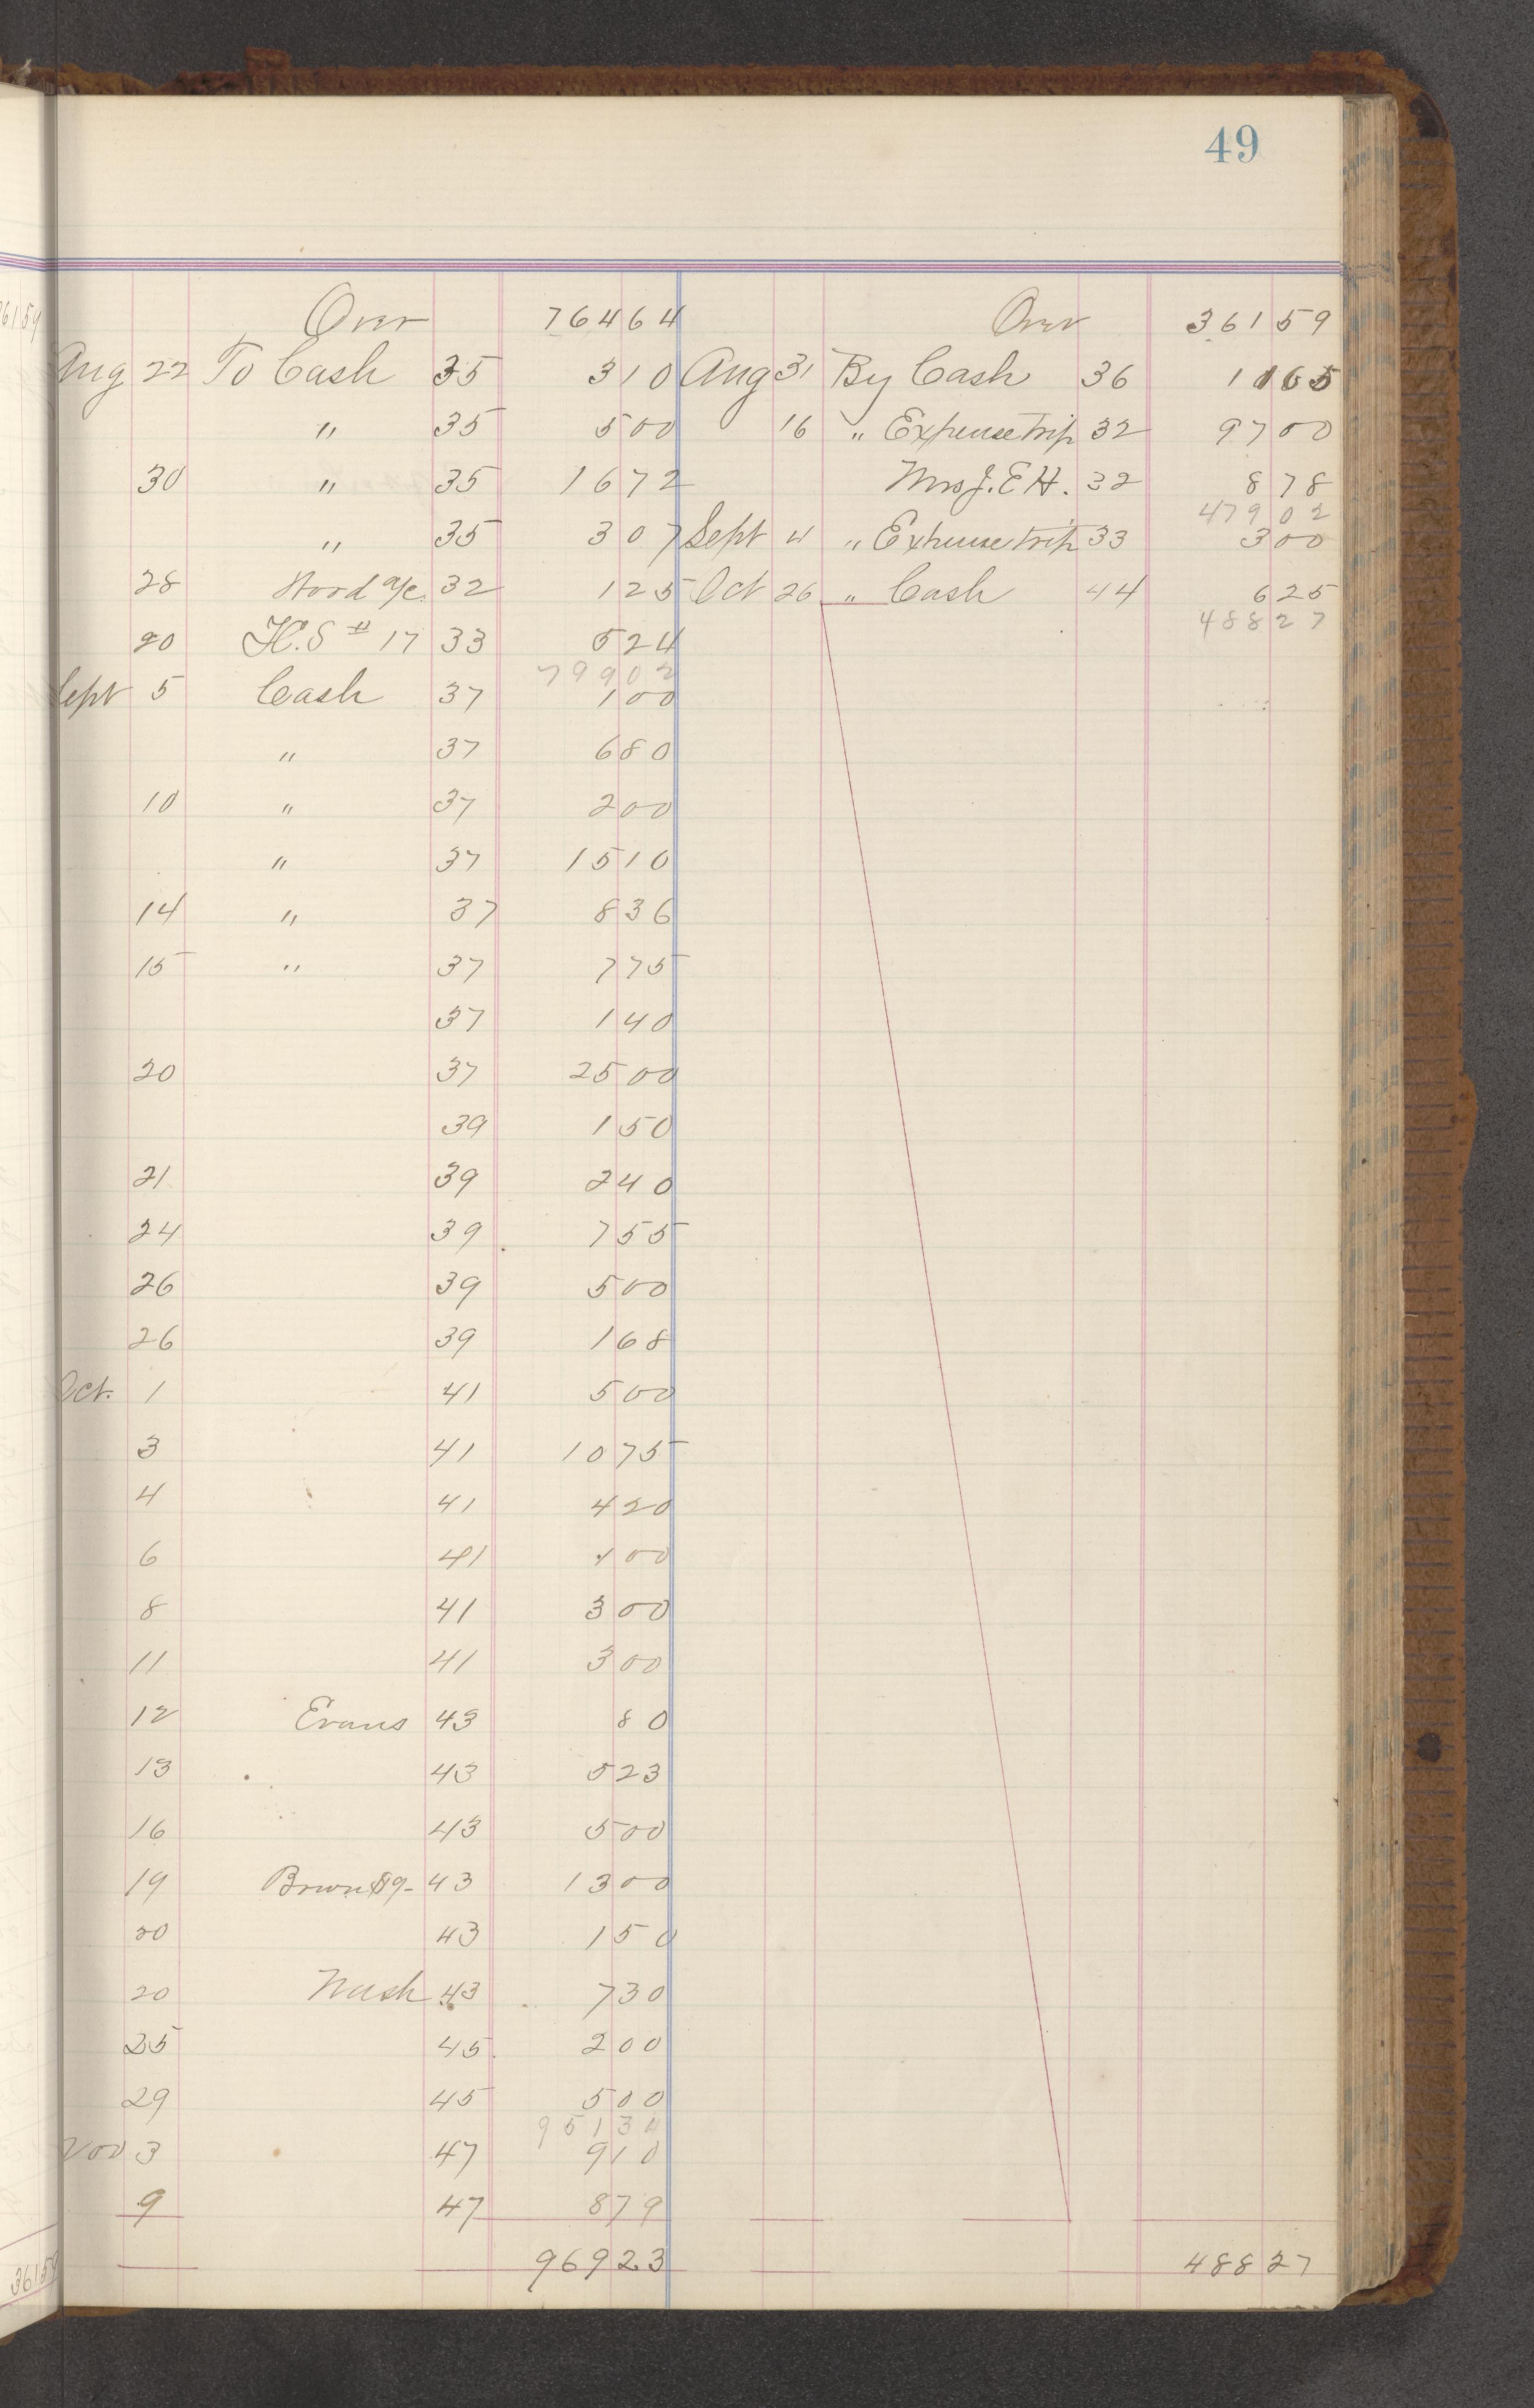 49
Over 764 64 Over 361 59
Aug 22 To Cash 35 3 10 Aug 31 By Cash 36 11 65
" 35 5 00 16 " Expense trip 32 97 00
30 " 35 16 72 Mrs J. E H. 32 8 78
479 02
" 35 3 07 Sept 4 " Expense trip 33 3 00
28 Hood a/c 32 1 25 Oct 26 " Cash 44 6 25
488 27
20 H. S # 17 33 5 24
799 02
Sept 5 Cash 37 1 00
" 37 6 80
10 " 37 2 00
" 37 15 10
14 " 37 8 36
15 " 37 7 75
37 1 40
20 37 25 00
39 1 50
21 39 2 40
24 39 7 55
26 39 5 00
26 39 1 68
Oct. 1 41 5 00
3 41 10 75
4 41 4 20
6 41 00
8 41 3 00
11 41 3 00
12 Evans 43 80
13 43 5 23
16 43 5 00
19 43 13 00
20 43 1 50
20 Nash 43 7 30
25 45 2 00
29 45 5 00
951 34
Nov 3 47 9 10
9 47 8 79
969 23 488 27